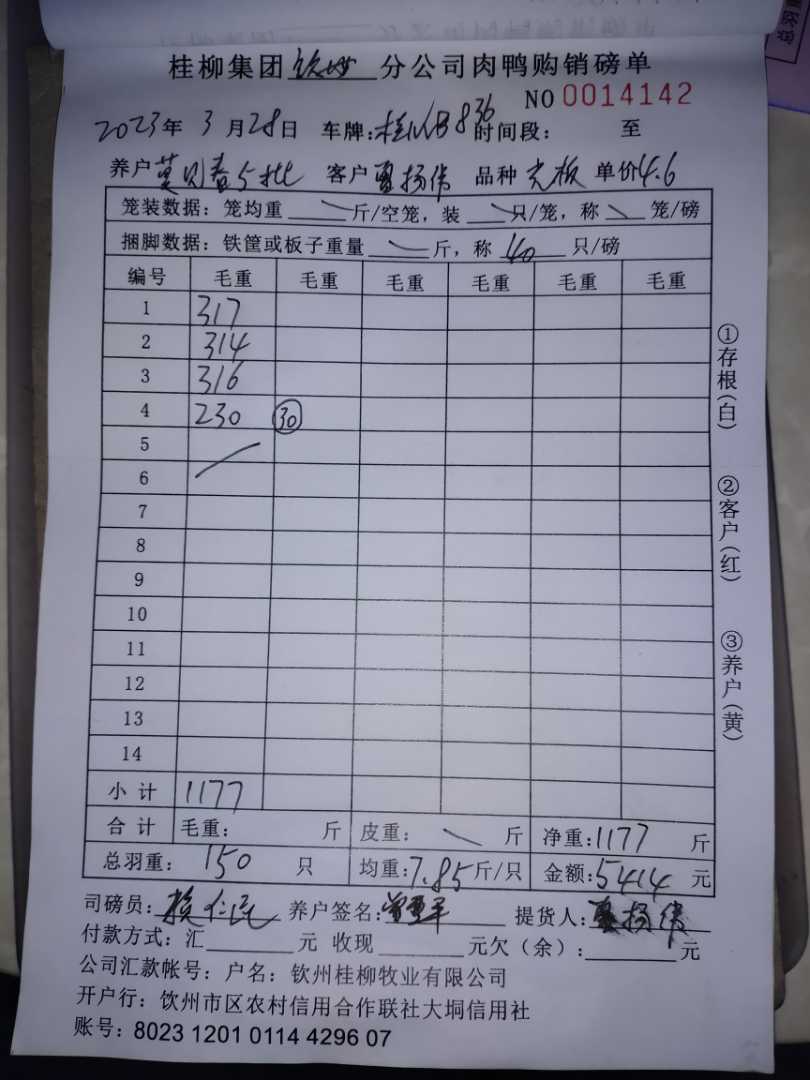 桂柳集团钦州分公司肉鸭购销磅单
NO 0014142
2023年3月28日 车牌:桂 B836 时间段: 至
养户 莫 5批 客户 杨伟 品种 光板 单价4.6
笼装数据:笼均重 斤/空笼,装 只/笼,称 笼/磅
捆脚数据:铁筐或板子重量 斤,称 40 只/磅
编号 毛重 毛重 毛重 毛重 毛重 毛重
1 317
2 314
3 316
4 230 30
5
6
7
8
9
10
11
12
13
14
小计 1177
合计 毛重: 斤 皮重: 斤 净重:1177 斤
总羽重: 150 只 均重:7.85斤/只 金额:5414 元
司磅员: 养户签名: 提货人: 杨伟
付款方式:汇 元 收现 元欠(余): 元
公司汇款帐号:户名:钦州桂柳牧业有限公司
开户行:饮州市区农村信用合作联社大垌信用社
账号:8023 1201 0114 4296 07
①存根(白)
②客户(红)
③养户(黄)